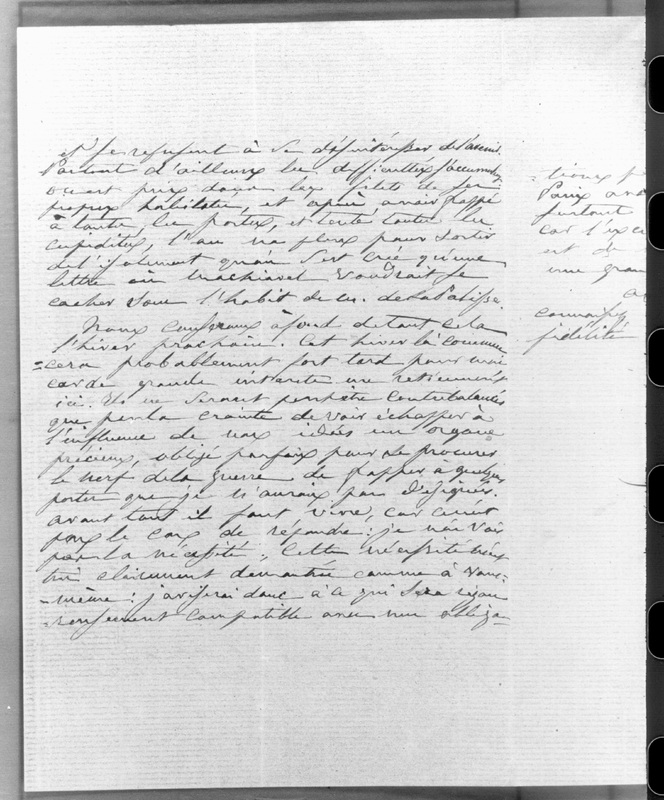 et se refusent à se désintéresser de l'armée.
Partout d'ailleurs les difficultés s'accumulent
on est pris dans les filets de ses
propres habiletés, et après avoir frappé
à toutes les portes, et tenté toutes les
cupidités, l'on ne peux pour sortir
une
lettre où Machiavel voudrait se
cacher sous l'habit de M. de la Palisse.
Nous causerons à fond de tout cela
l'hiver prochain. Cet hiver là commen
=cera probablement fort tard pour moi
car de grands intérêts me retiennent
ici. Ils ne seront peut être contrebalancés
que par la crainte de voir échapper à
l'influence de nos idées un organe
précieux, obligé parfois pour se procurer
le nerf de la guerre de frapper à quelques
portes que je n'aurais pas désignées.
avant tout il faut vivre, car c'est
pas le cas de répondre : je n'en vois
pas la nécessité. Cette nécessité m'est
très clairement démontrée comme à vous-
-même : j'aviserai donc à ce qui sera rigou
-reusement compatible avec mes obliga-
-tions
Paris
surtout
car l'
est de
une gran
connaissez
fidélité